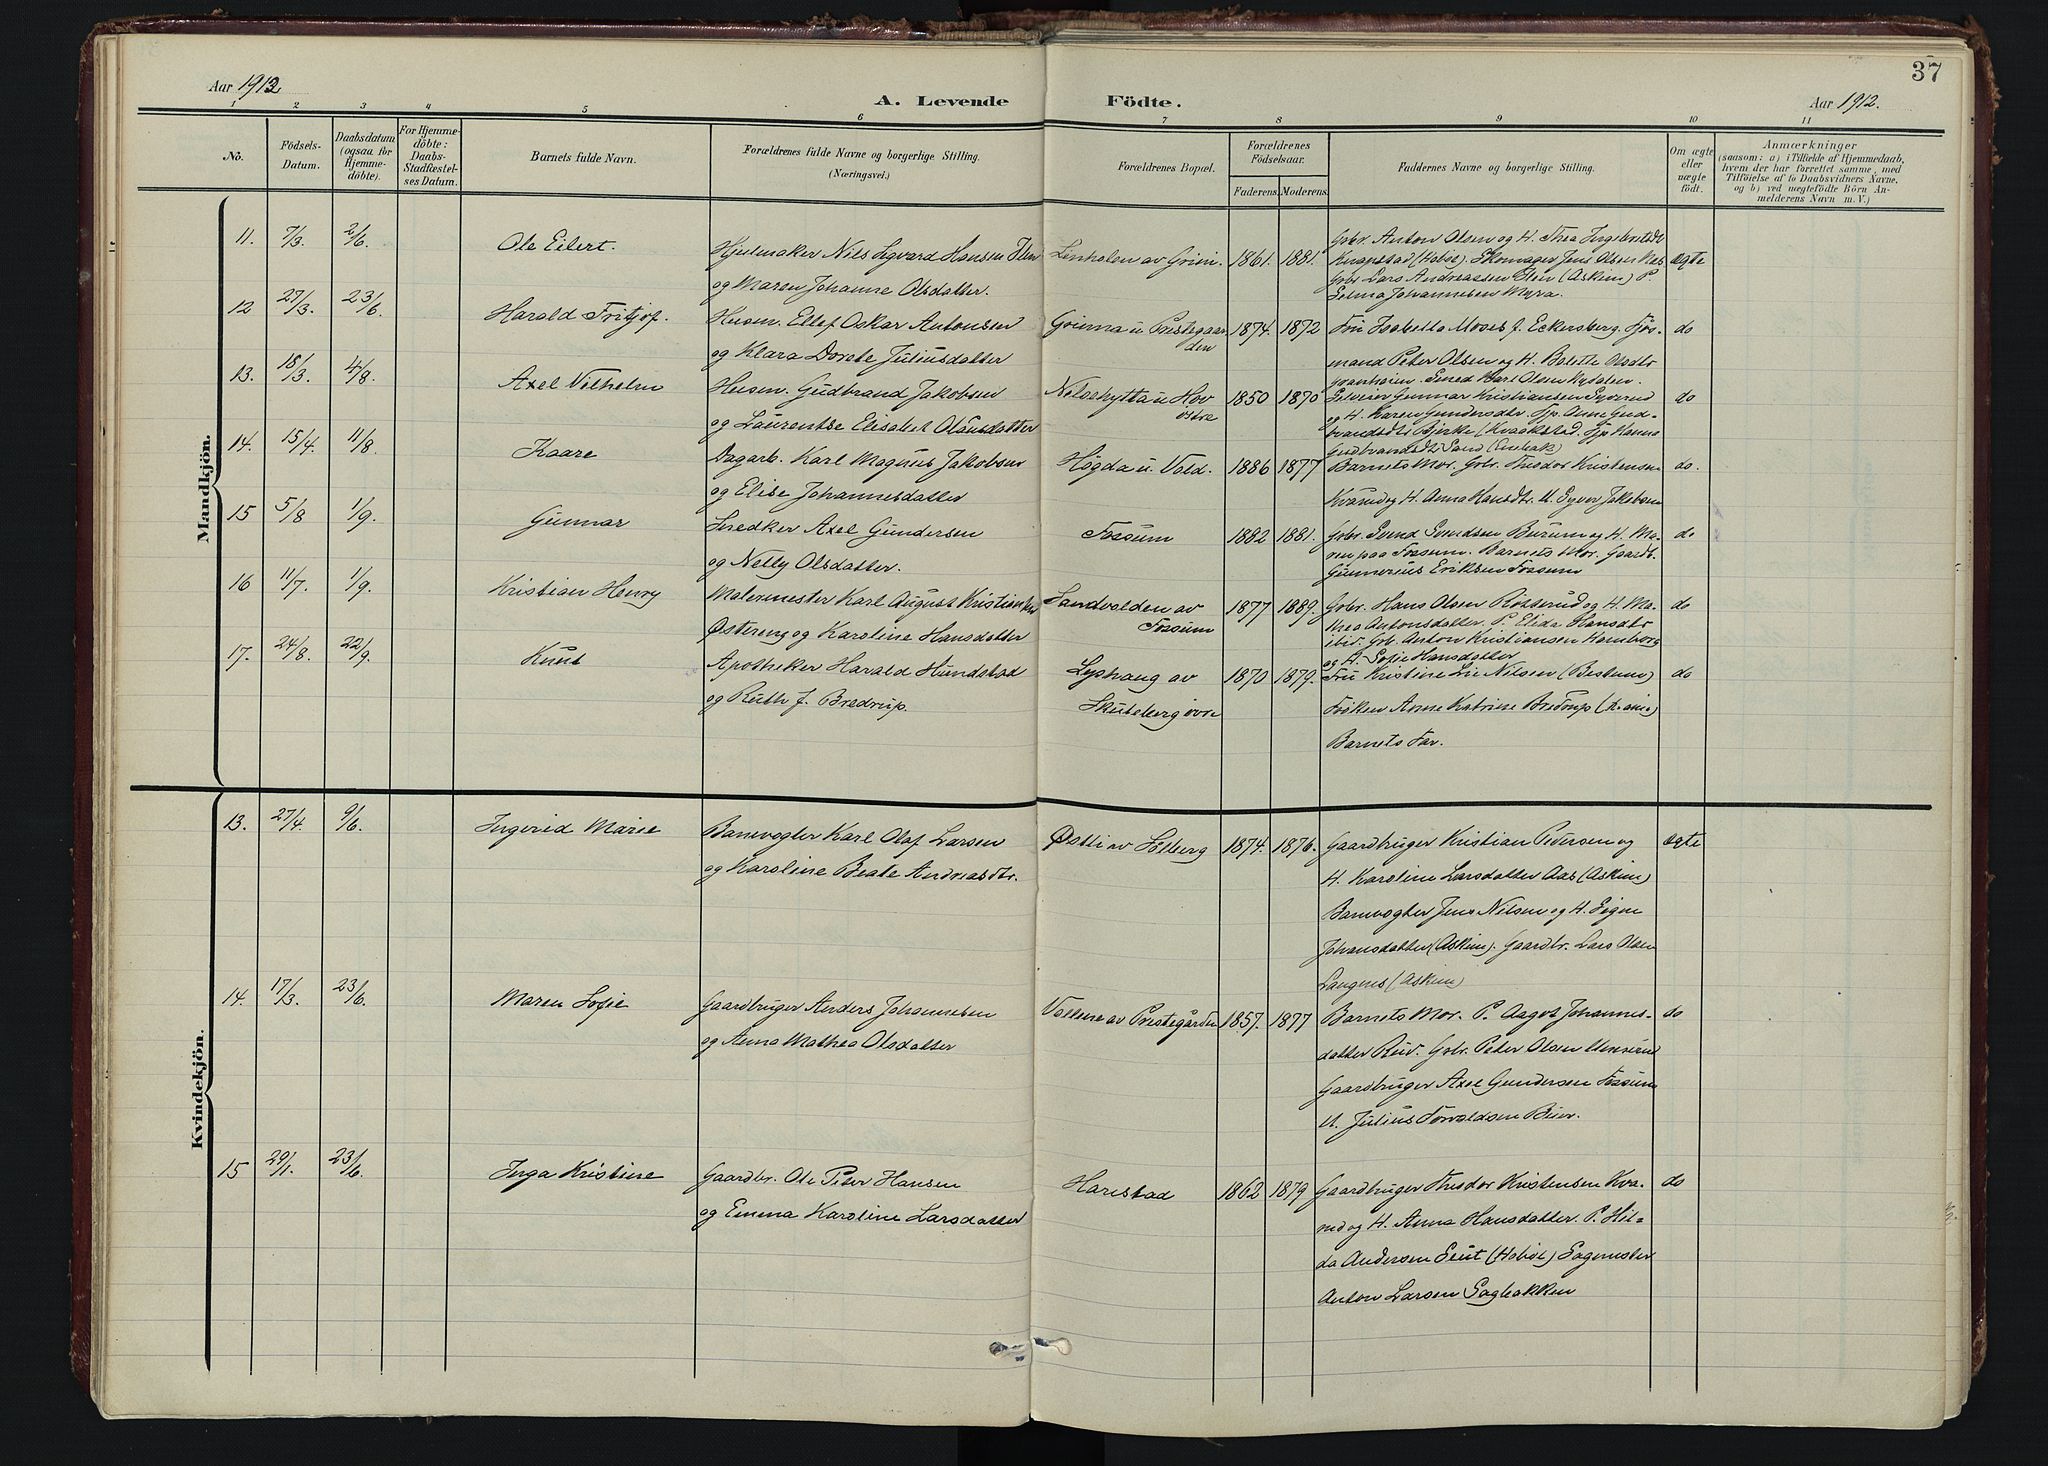 37
Aar 1912.
A. Levende Födte.
Aar 1912.
1 2 3 4 5 6 7 8 9 10 11
No.
Födsels-
Datum.
Daabsdatum
(ogsaa for
Hjemme-
döbte).
For Hjemme-
döbte:
Daabs-
Stadfæstel-
ses Datum.
Barnets fulde Navn.
Forældrenes fulde Navne og borgerlige Stilling.
(Næringsvei.)
Forældrenes Bopæl.
Forældrenes
Födselsaar.
Faderens. Moderens.
Faddernes Navne og borgerlige Stilling.
Om ægte
eller
uægte
födt.
Anmærkninger
(saasom: a) i Tilfælde af Hjemmedaab,
hvem der har forrettet samme, med
Tilföielse af to Daabsvidners Navne,
og b) ved uægtefödte Börn An-
melderens Navn m. V.)
Mandkjön.
11. 7/3. 2/6. Ole Eilert. Hjulmaker Nils Sigvard Hansen
og Maren Johanne Olsdatter.
av Grini. 1861. 1881.
Gbr. Anton Olsen og H. Thea
Knapstad (Hobøl). Skomager Jens Olsen
Gbr. Lars Andreassen (Askim) P.
Selma Johannesen Myra.
ægte
12 27/3. 23/6. Harald Fritjof. Husm. Ellef Oskar Antonsen
og Klara Dorete Juliusdatter
u Prestegaar
den
1874. 1872
Fru Isabella Moses f. Eckersberg. Fjös-
mand Peter Olsen og H. Bolette Olsdtr
Smed Karl Olsen
do
13. 18/3. 4/8. Axel Vilhelm Husm. Gudbrand Jakobsen
og Laurentse Elisabet Olausdatter
Nilsehytta u Hov
östre
1850 1870
Gunnar Kristiansen
og H. Karen Gundersdtr. Anne Gud-
brandsdtr Bjerke (Kraakstad. Hanna
Gudbrandsdtr Sand (Enebak)
do
14. 15/4. 11/8. Kaare Dagarb. Karl Magnus Jakobsen
og Elise Johannesdatter
Högda u. Vold. 1886 1877
Barnets Mor. Gbr. Theodor Kristensen
og H. Anna Hansdtr. U. Syver Jakobsen
do.
15 5/8 1/9. Gunnar Snedker Axel Gundersen
og Nelly Olsdatter.
Fossum 1882 1881.
Gbr. Svend Svendsen Burum og H. Ma-
ren paa Fossum. Barnets Mor. Gaardb.
Gunnerius Eriksen Fossum
do
16 11/7. 1/9. Kristian Henry Malermester Karl August Kristiansen
Østereng og Karoline Hansdatter
Sandvolden av
Fossum
1877 1889.
Gbr. Hans Olsen Rosserud og H. Ma-
thea Antonsdatter. P. Elida Hansdtr
ibid. Gbr. Anton Kristiansen Hamborg
og H. Sofie Hansdatter
do
17. 24/8. 22/9. Knut Apotheker Harald Hundstad
og Ruth f. Bredrup.
Lyshaug av
Skuleberg övre
1870 1879.
Fru Kristine Lie Nilsen (Bestum)
Fröken Anne Katrine Bredrup (Kr.ania)
Barnets Far.
do
Kvindekjön.
13. 27/4. 9/6. Ingerid Marie Banevogter Karl Olaf Larsen
og Karoline Beate Andreasdtr.
av Solberg 1874. 1876.
Gaardbruger Kristian Pedersen og
H. Karoline Larsdatter Aas (Askim)
Banevogter Jens Nilsen og H. Signe
Johansdatter (Askim). Gaardbr. Lars Olsen
Langnes (Askim)
ægte
14. 17/3. 23/6. Maren Sofie Gaardbruger Anders Johannesen
og Anna Mathea Olsdatter
Vollene av Prestegården 1857. 1877
Barnets Mor. P. Aagot Johannes-
datter Rud. Gbr. Peter Olsen
Gaardbruger Axel Gundersen Fossum
U. Julius Torvaldsen Buer.
do
15 29/1. 23/6. Inga Kristine Gaardbr. Ole Peter Hansen
og Emma Karoline Larsdatter
Harestad 1862 1879
Gaardbruger Theodor Kristensen Kva-
og H. Anna Hansdatter. P. Hil-
da Andersen (Hobøl) Sagmester
Anton Larsen Sagbakken
do